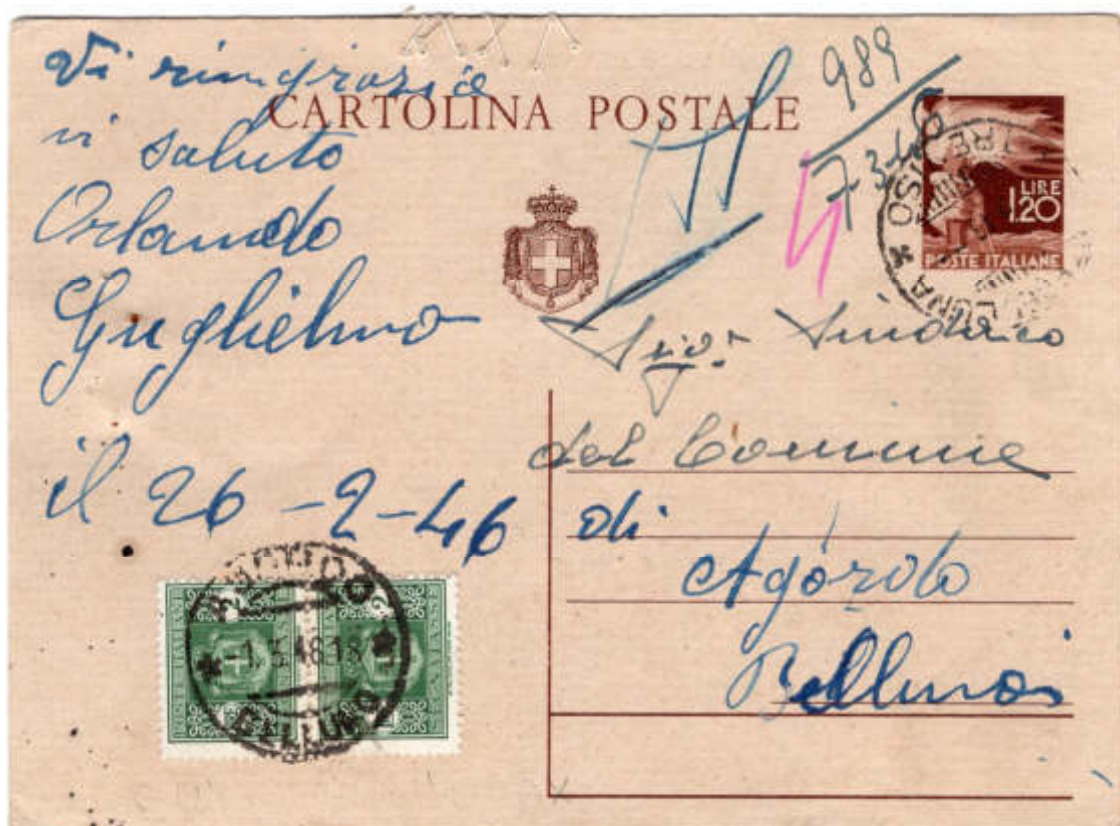 Vi ringrazia
vi saluto
Orlando
Guglielmo
il 26-2-46
CARTOLINA POSTALE
989
7-3-46
LIRE
1.20
POSTE ITALIANE
Sigr Sindaco
del Comune
di
Agordo
Belluno
AGORDO
1.3.46.18
BELLUNO